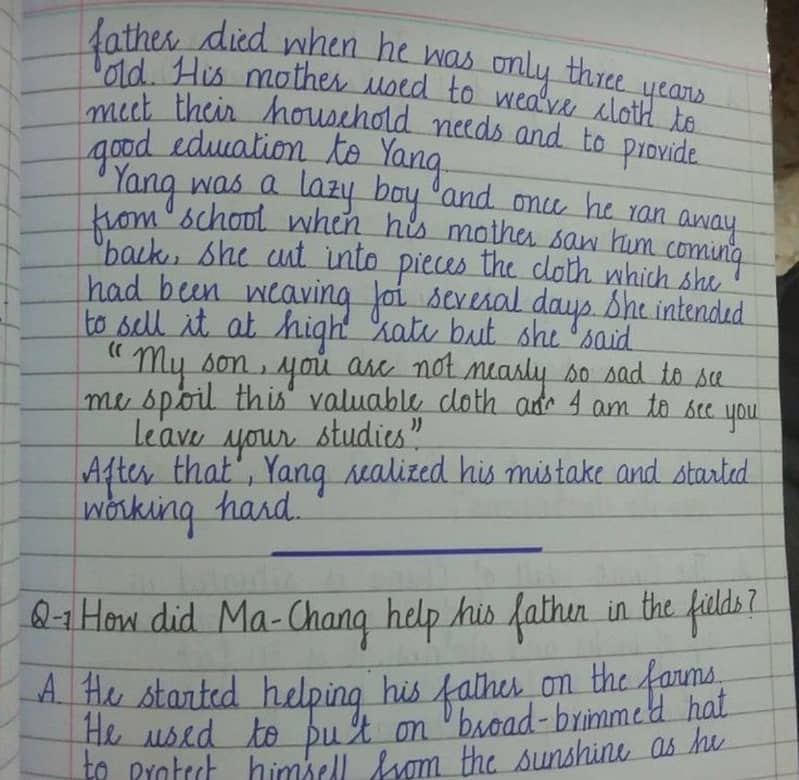 father died when he was only three years
old. His mother used to weave cloth to
meet their household needs and to provide
good education to Yang.
Yang was a lazy boy and once he ran away
from school when his mother saw him coming
back, she cut into pieces the cloth which she
had been weaving for several days. She intended
to sell it at high rate but she said
“My son, you are not nearly so sad to see
me spoil this valuable cloth I am to see you
leave your studies”
After that, Yang realized his mistake and started
working hard.
Q-1 How did Ma-Chang help his father in the fields?
A. He started helping his father on the farms.
He used to put on broad-brimmed hat
to protect himself from the sunshine as he